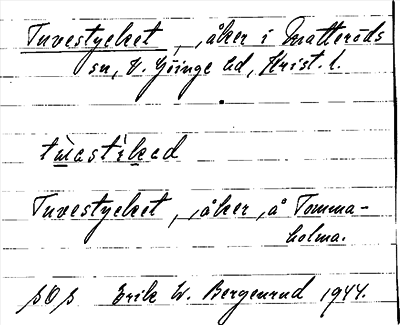 Tuvestycket, åker i Matteröds
sn, V. Göinge hd, Krist. l.
Tuvestycket, åker, å Tomma-
holma.
SOS Erik W. Bergenrud 1944.